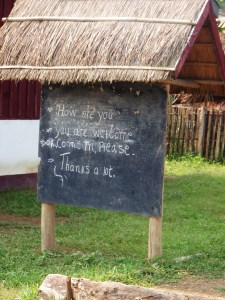 How are you
you are welcome
Come in, Please.
Thanks a lot.